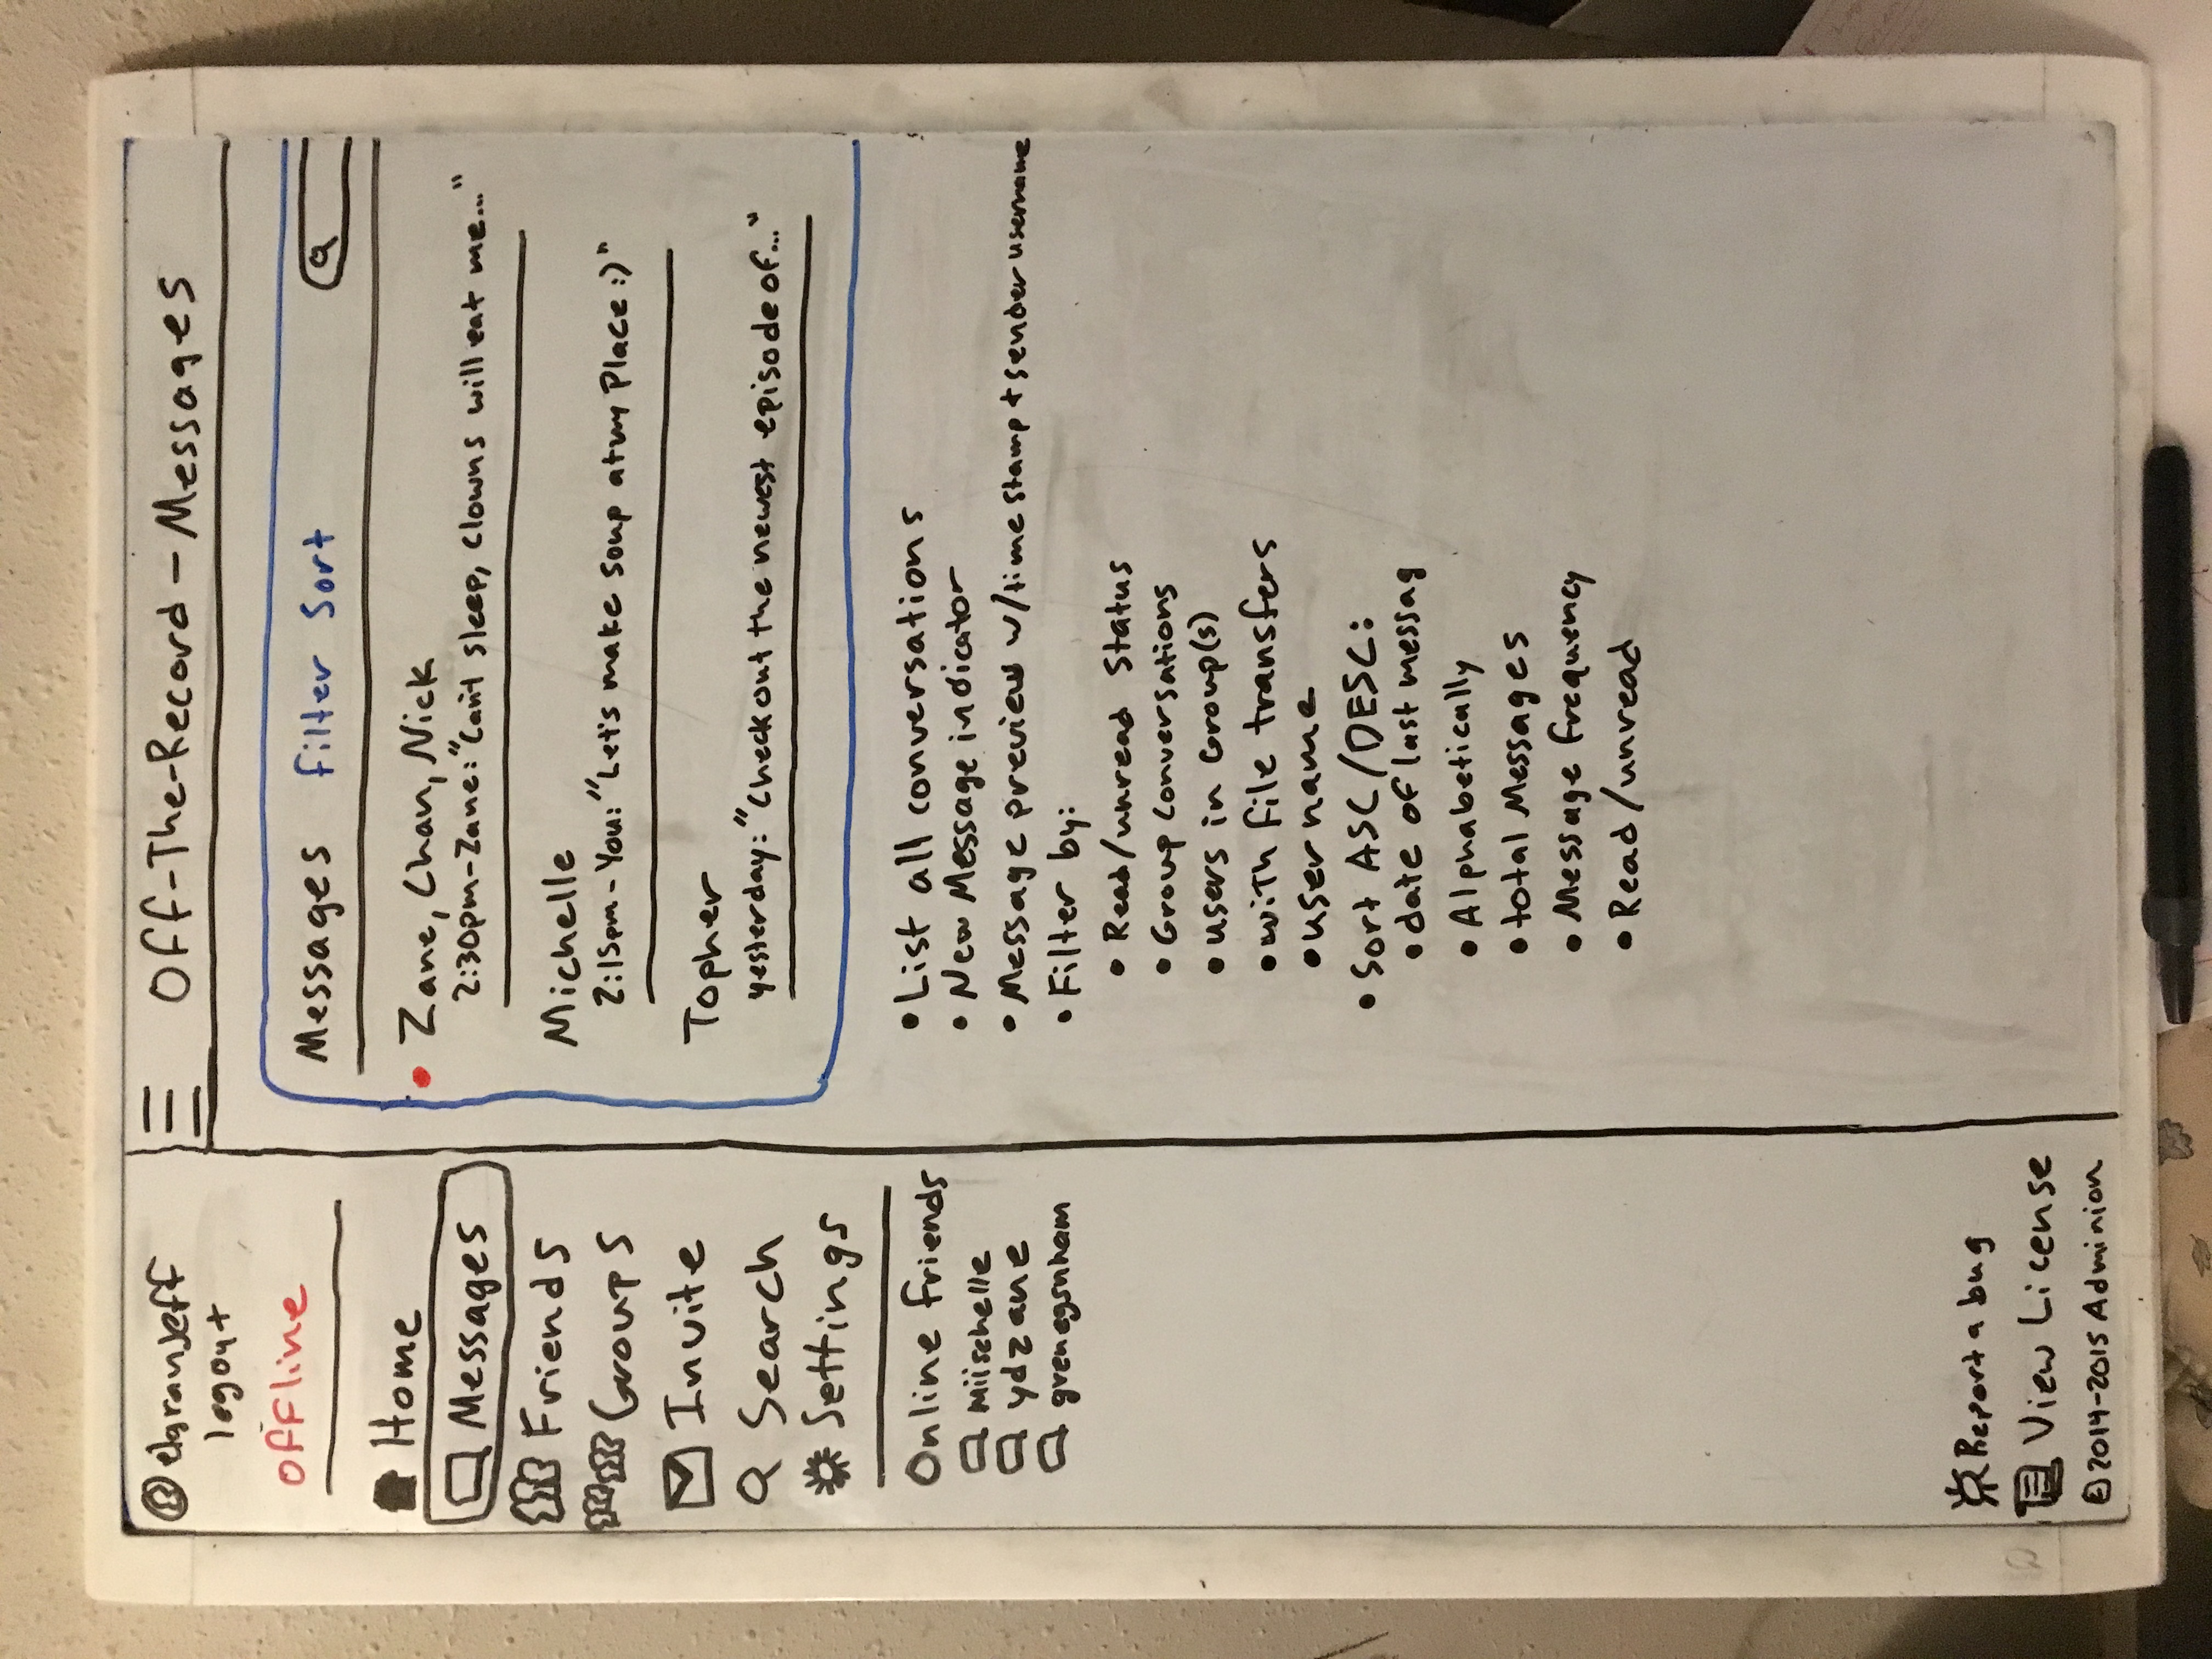 elgranjeff
logout
offline
Home
Messages
Friends
Groups
Invite
Search
Settings
Online friends
Miischelle
ydzane
grenegsnham
Report a bug
View License
©2014-2015 Adminion
Off-The-Record - Messages
Messages Filter Sort
Zane, Chan, Nick
2:30pm-Zane: "Can't sleep, clowns will eat me..."
Michelle
2:15pm - You: "Let's make soup at my Place :)"
Topher
yesterday: "Check out the newest episode of..."
• List all conversations
• New Message indicator
• Message preview w/time stamp + sender username
• Filter by:
• Read/unread Status
• Group conversations
• users in Group(s)
• with file transfers
• user name
• Sort ASC/DESC:
• date of last messag
• Alphabetically
• total Messages
• Message frequency
• Read/unread